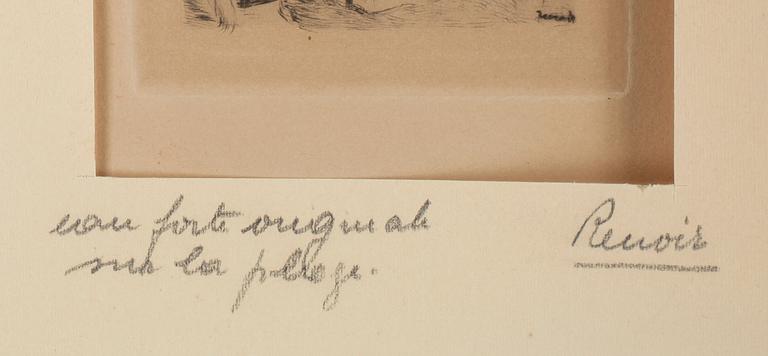 eau forte originale Renoir
sur la plage.
Renoir